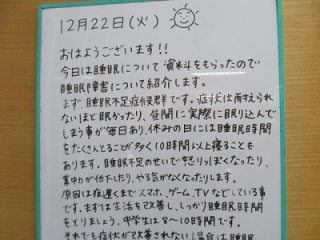 12月22日(火)
おはようございます!!
今日は睡眠について資料をもらったので
睡眠障害について紹介します。
まず、睡眠不足症候群です。症状は耐えられ
ないほど眠かったり、昼間に実際に眠り込んで
しまう事が毎日あり、休みの日には睡眠時間
をたくさんとることが多く10時間以上寝ることも
あります。睡眠不足のせいで怒りっぽくなったり、
集中力が低下したり、やる気がなくなったりします。
原因は夜遅くまでスマホ、ゲーム、TVなどしている事
です。まずは生活を改善し、しっかり睡眠時間
をとりましょう。中学生は8〜10時間です。
それでも症状が改善されない場合は睡眠